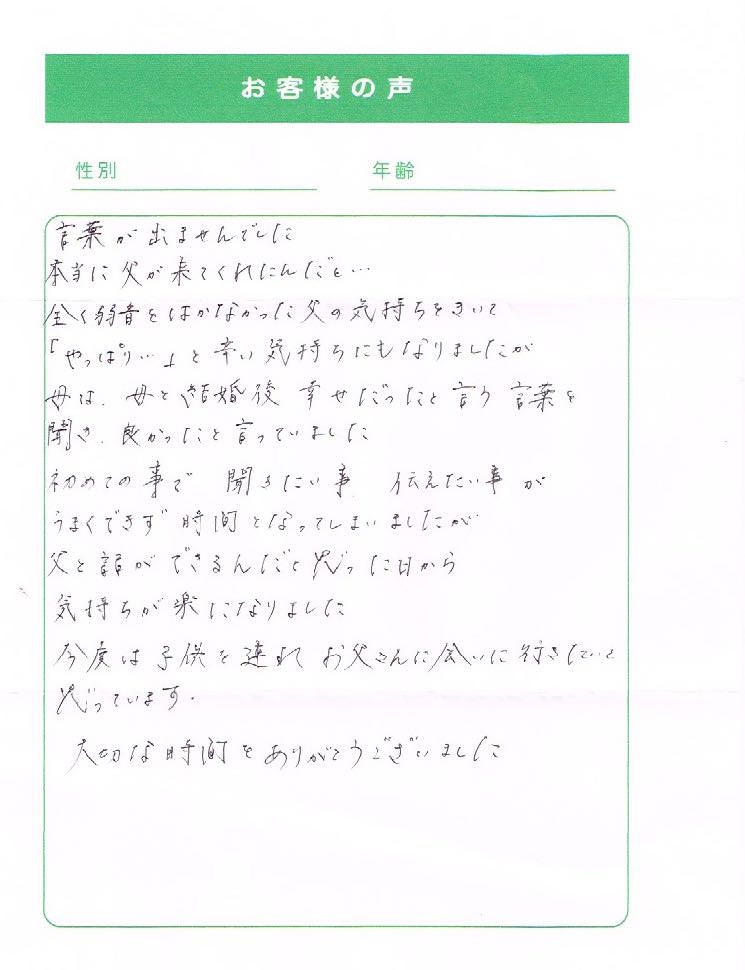 お客様の声
性別 年齢
言葉が出ませんでした
本当に父が来てくれたんだと…
全く弱音をはかなかった父の気持ちをきいて
「やっぱり…」と辛い気持ちにもなりましたが
母は、母と結婚後 幸せだったと言う言葉を
聞き、良かったと言っていました
初めての事で 聞きたい事 伝えたい事が
うまくできず 時間となってしまいましたが
父と話ができるんだと思った日から
気持ちが楽になりました
今度は子供を連れ お父さんに会いに行きたいと
思っています.
大切な時間をありがとうございました